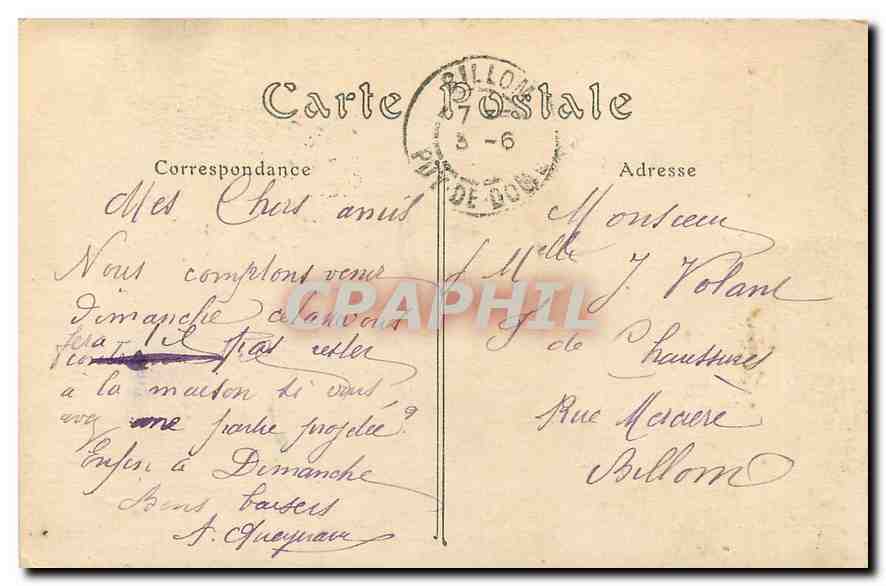 Carte Postale
BILLOM
7
3 - 6
PUY-DE-DOME
Correspondance
Mes Chers amis
Nous comptons venir
Dimanche cela vous
fera il pas rester
a la maison si vous
avez une partie projetée ?
Enfin à Dimanche
Bons baisers
Adresse
Monsieur
Melle J. Volant
de Chaussures
Rue Mercière
Billom
CRAPHIL